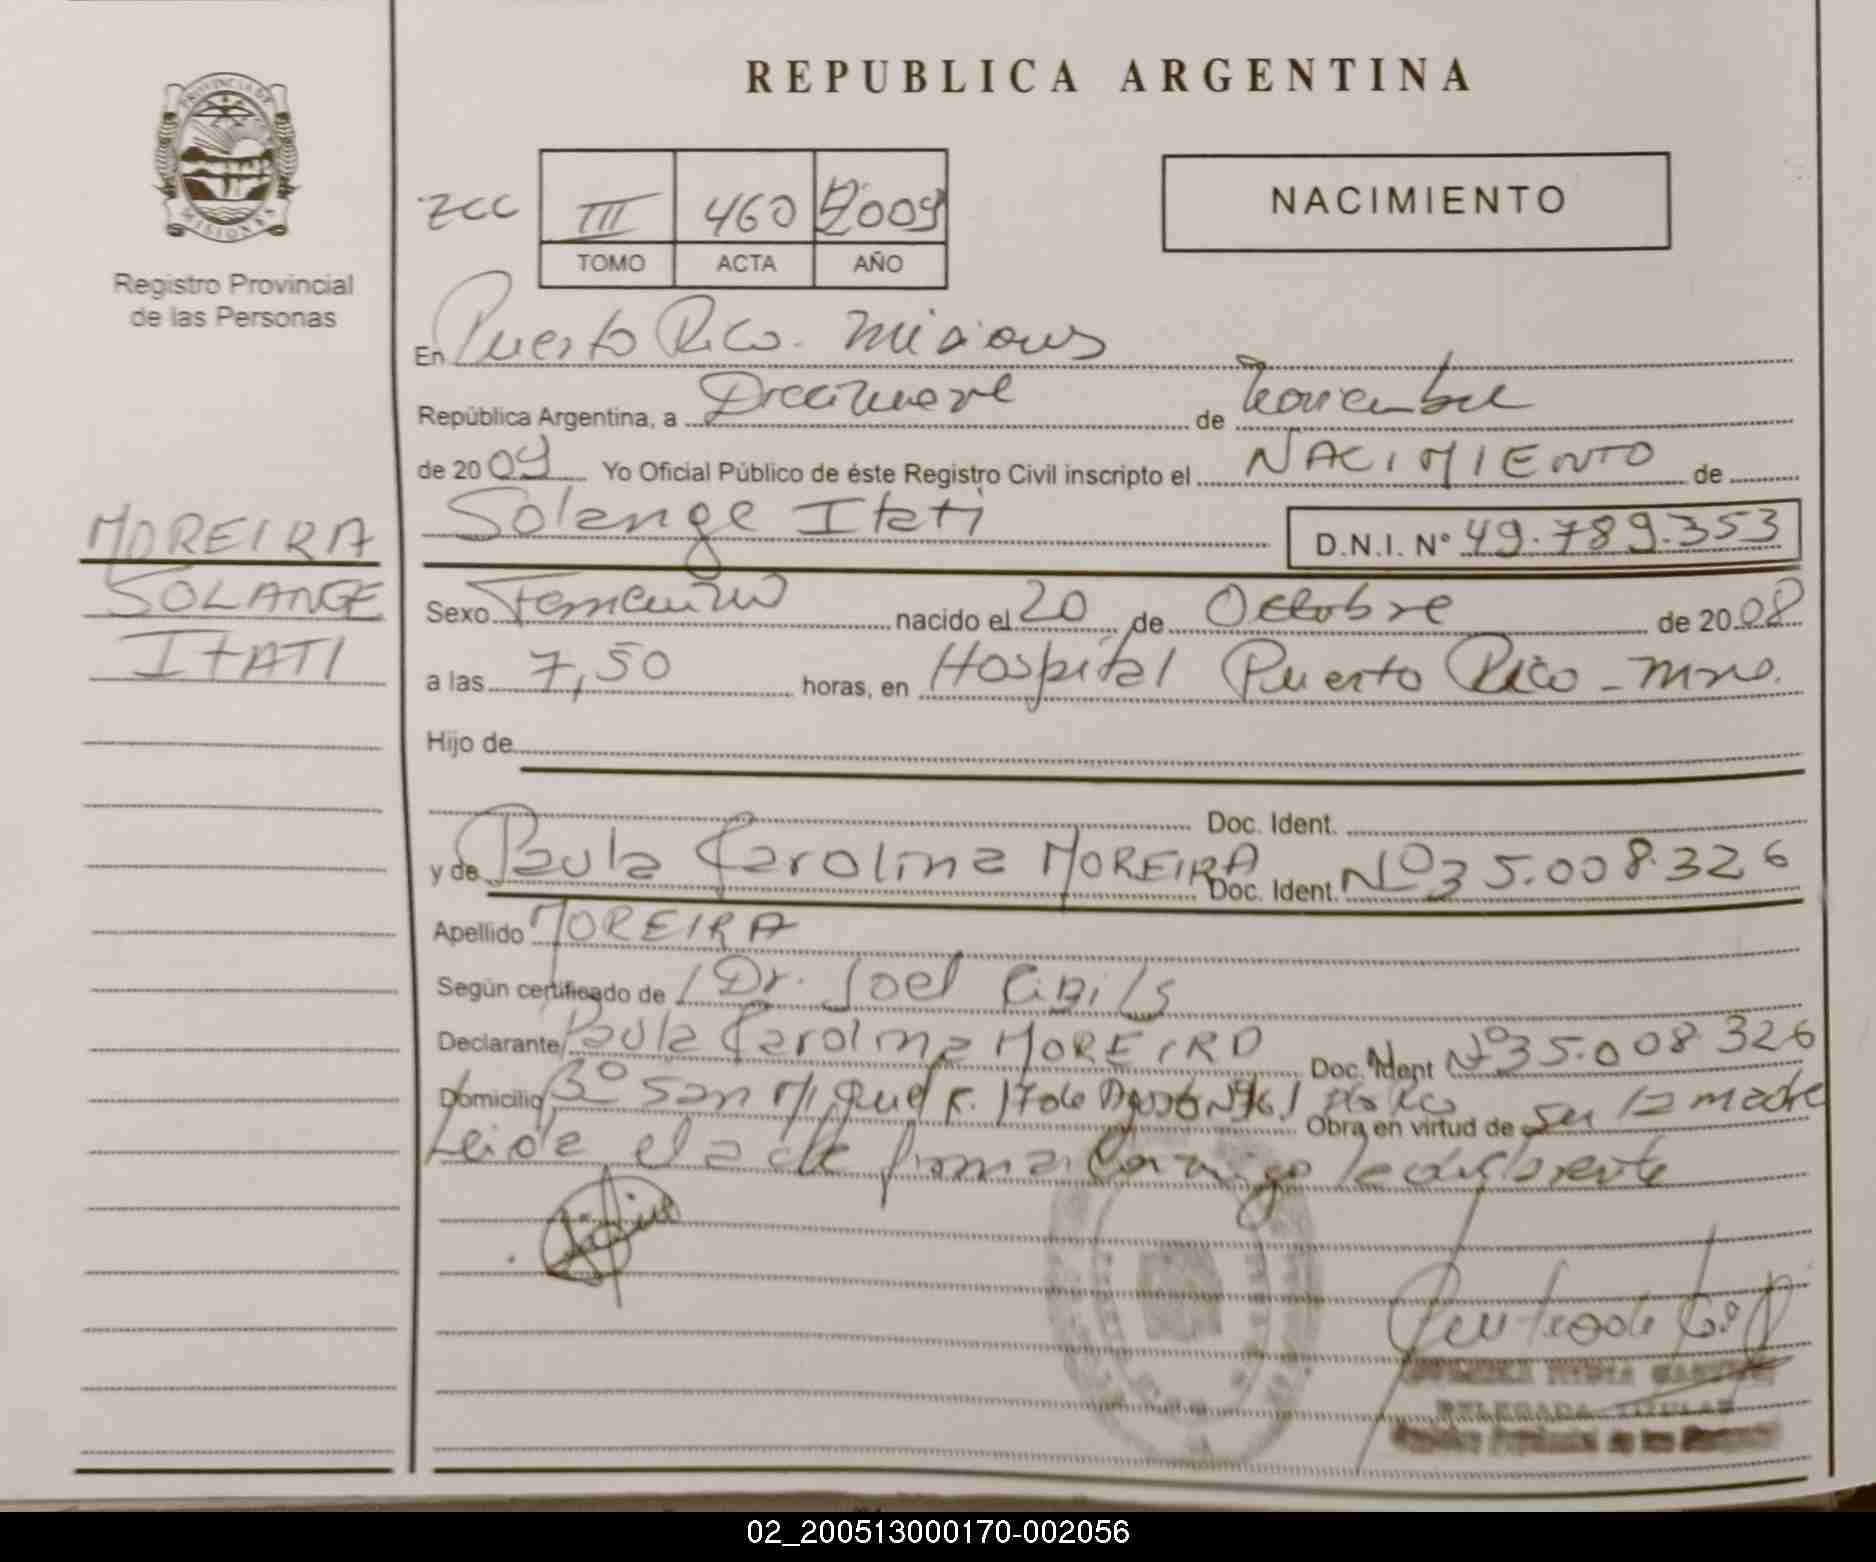 REPUBLICA ARGENTINA
PROVINCIA DE
MISIONES
Registro Provincial
de las Personas
NACIMIENTO
ZCC III 460 2009
TOMO ACTA AÑO
En Puerto Rico. Misiones
República Argentina, a Diecinueve de Noviembre
de 2009 Yo Oficial Público de éste Registro Civil inscripto el NACIMIENTO de
Solange Itati D.N.I. N° 49.789.353
MOREIRA
SOLANGE
ITATI
Sexo Femenino nacido el 20 de Octubre de 2008
a las 7,50 horas, en Hospital Puerto Rico - Mnes.
Hijo de
Doc. Ident.
y de Paula Carolina MOREIRA Doc. Ident. Nº 35.008.326
Apellido MOREIRA
Según certificado de Dr. Joel
Declarante Paula Carolina MOREIRA Doc. Ident Nº 35.008.326
Domicilio Bº San Miguel 17 de Agosto Obra en virtud de ser la madre
Leida el acta firma conmigo la declarante
DELEGADA TITULAR
Registro Provincial de las Personas
02_200513000170-002056